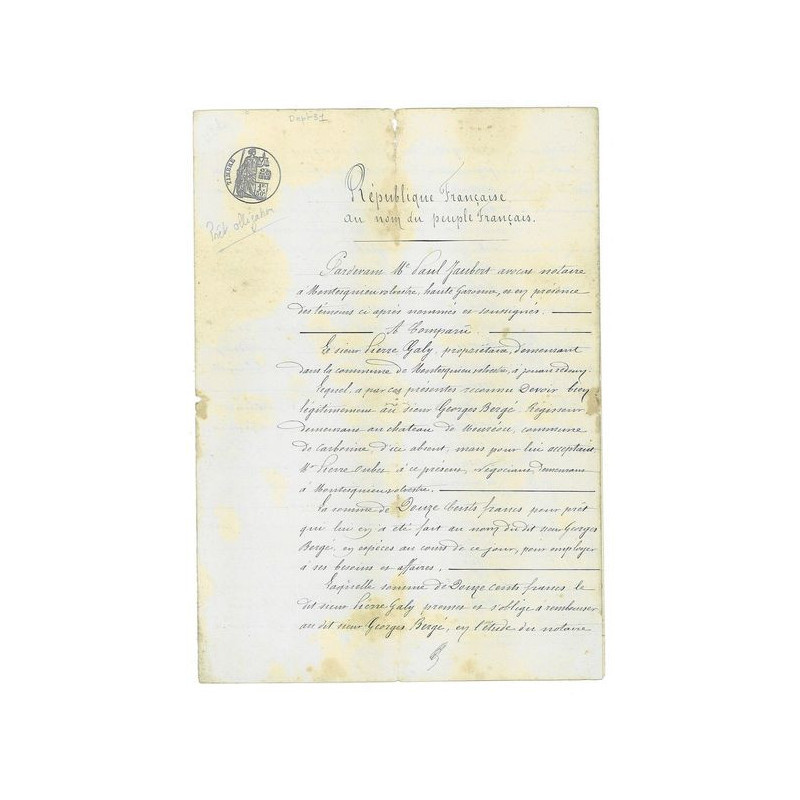 Dept 31
TIMBRE
Prêt obligation
République Française
au nom du peuple Français.
Pardevant Me Paul Jaubert avocat notaire
à Montesquieu volvestre, haute Garonne, et en présence
des témoins ci après nommés et soussignés.
A Comparu
Le sieur Pierre Galy, propriétaire, demeurant
dans la commune de Montesquieu volvestre, à
Lequel, a par ces présentes reconnu Devoir bien
légitimement au sieur Georges Bergé, Régisseur
demeurant au chateau de commune
de Carbonne, d'ice absent, mais pour lui acceptant
Mr Pierre à ce présent, négociant, demeurant
à Montesquieu volvestre.
La somme de Douze Cents francs, pour prêt
qui lui en a été fait au nom du dit sieur Georges
Bergé, en espèces au cours de ce jour, pour employer
à ses besoins et affaires.
Laquelle somme de Douze cents francs le
dit sieur Pierre Galy promet et s'oblige a rembourser
au dit sieur Georges Bergé, en l'étude du notaire